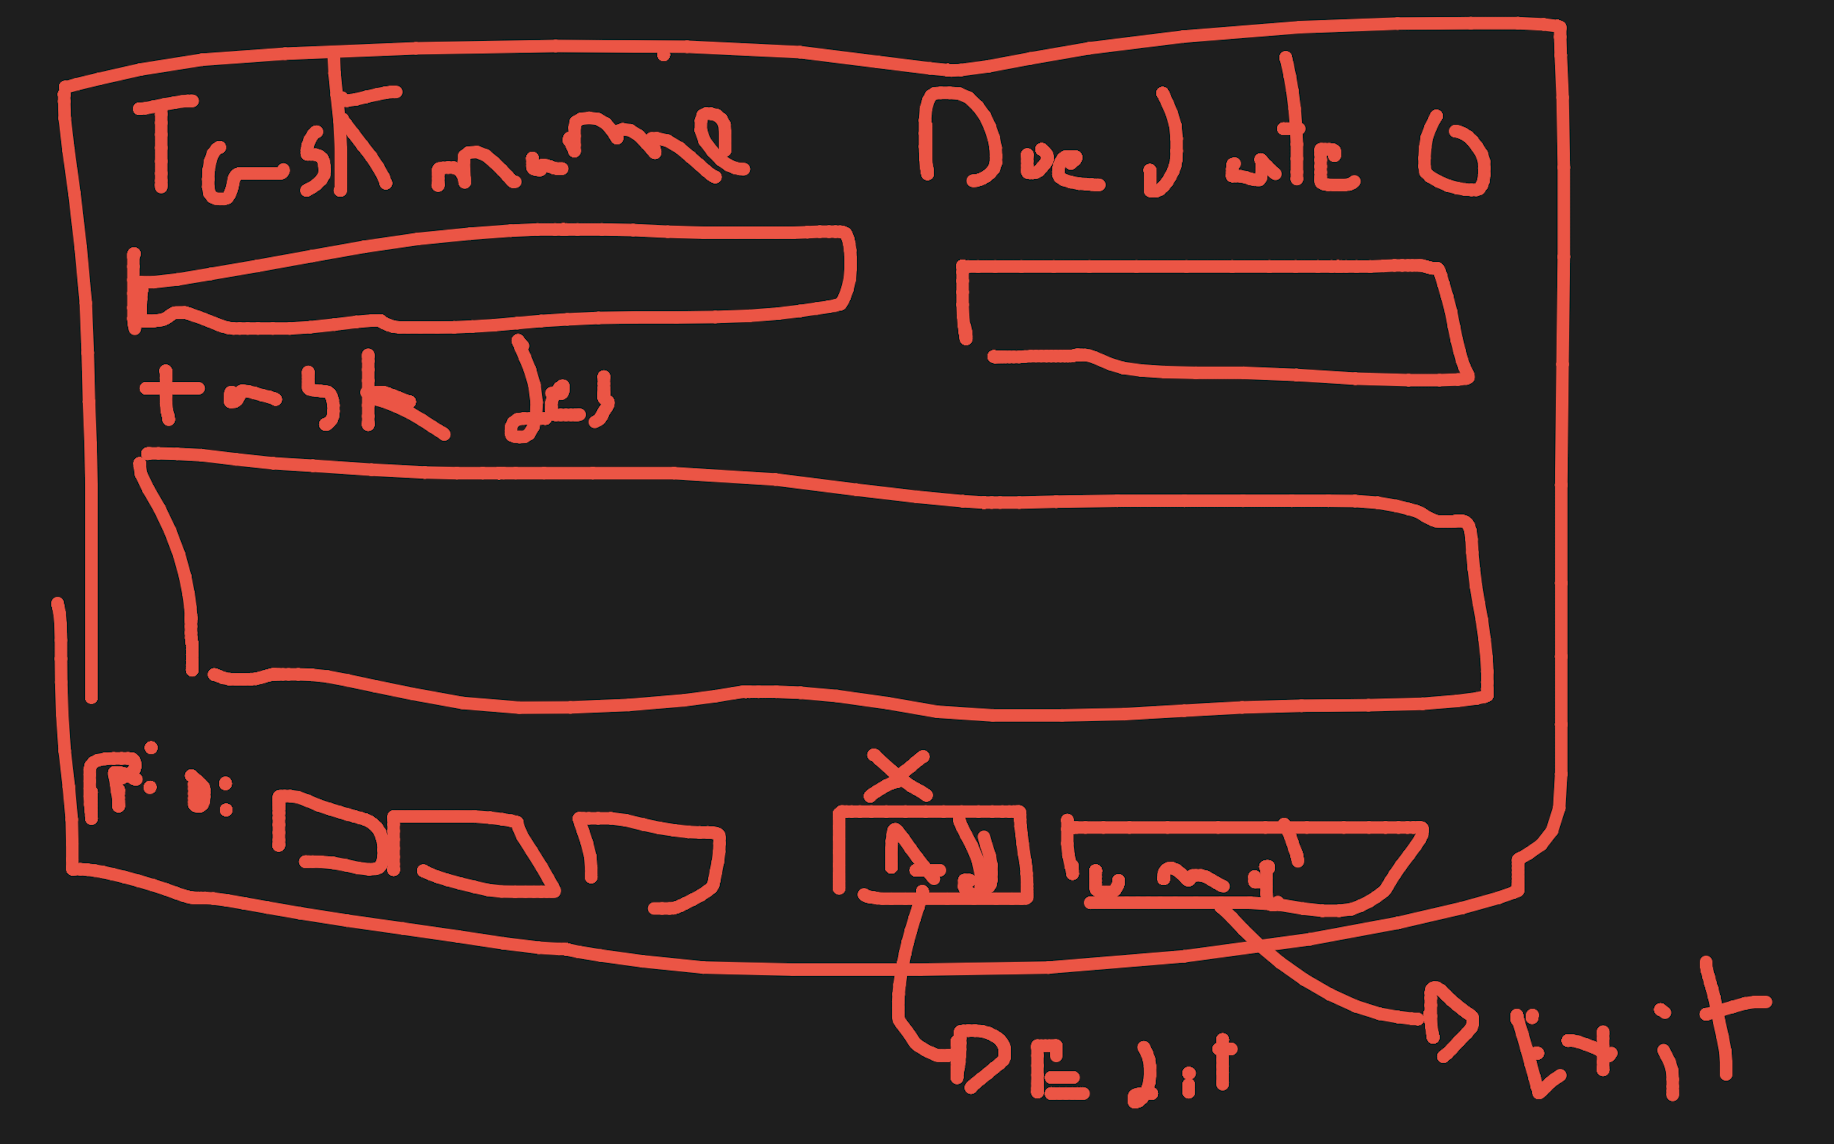 Task name Due date
task des
Ad
Edit
Exit